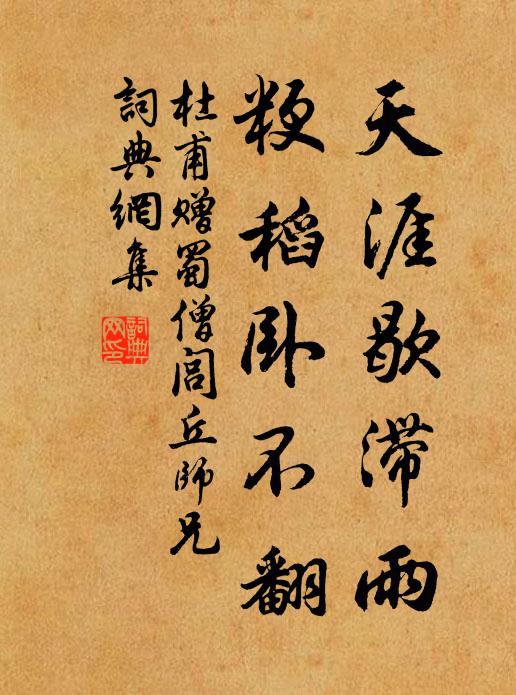 天涯歇滞雨
粳稻卧不翻
杜甫赠蜀僧闾丘師兄
詞典網集
詞典网印